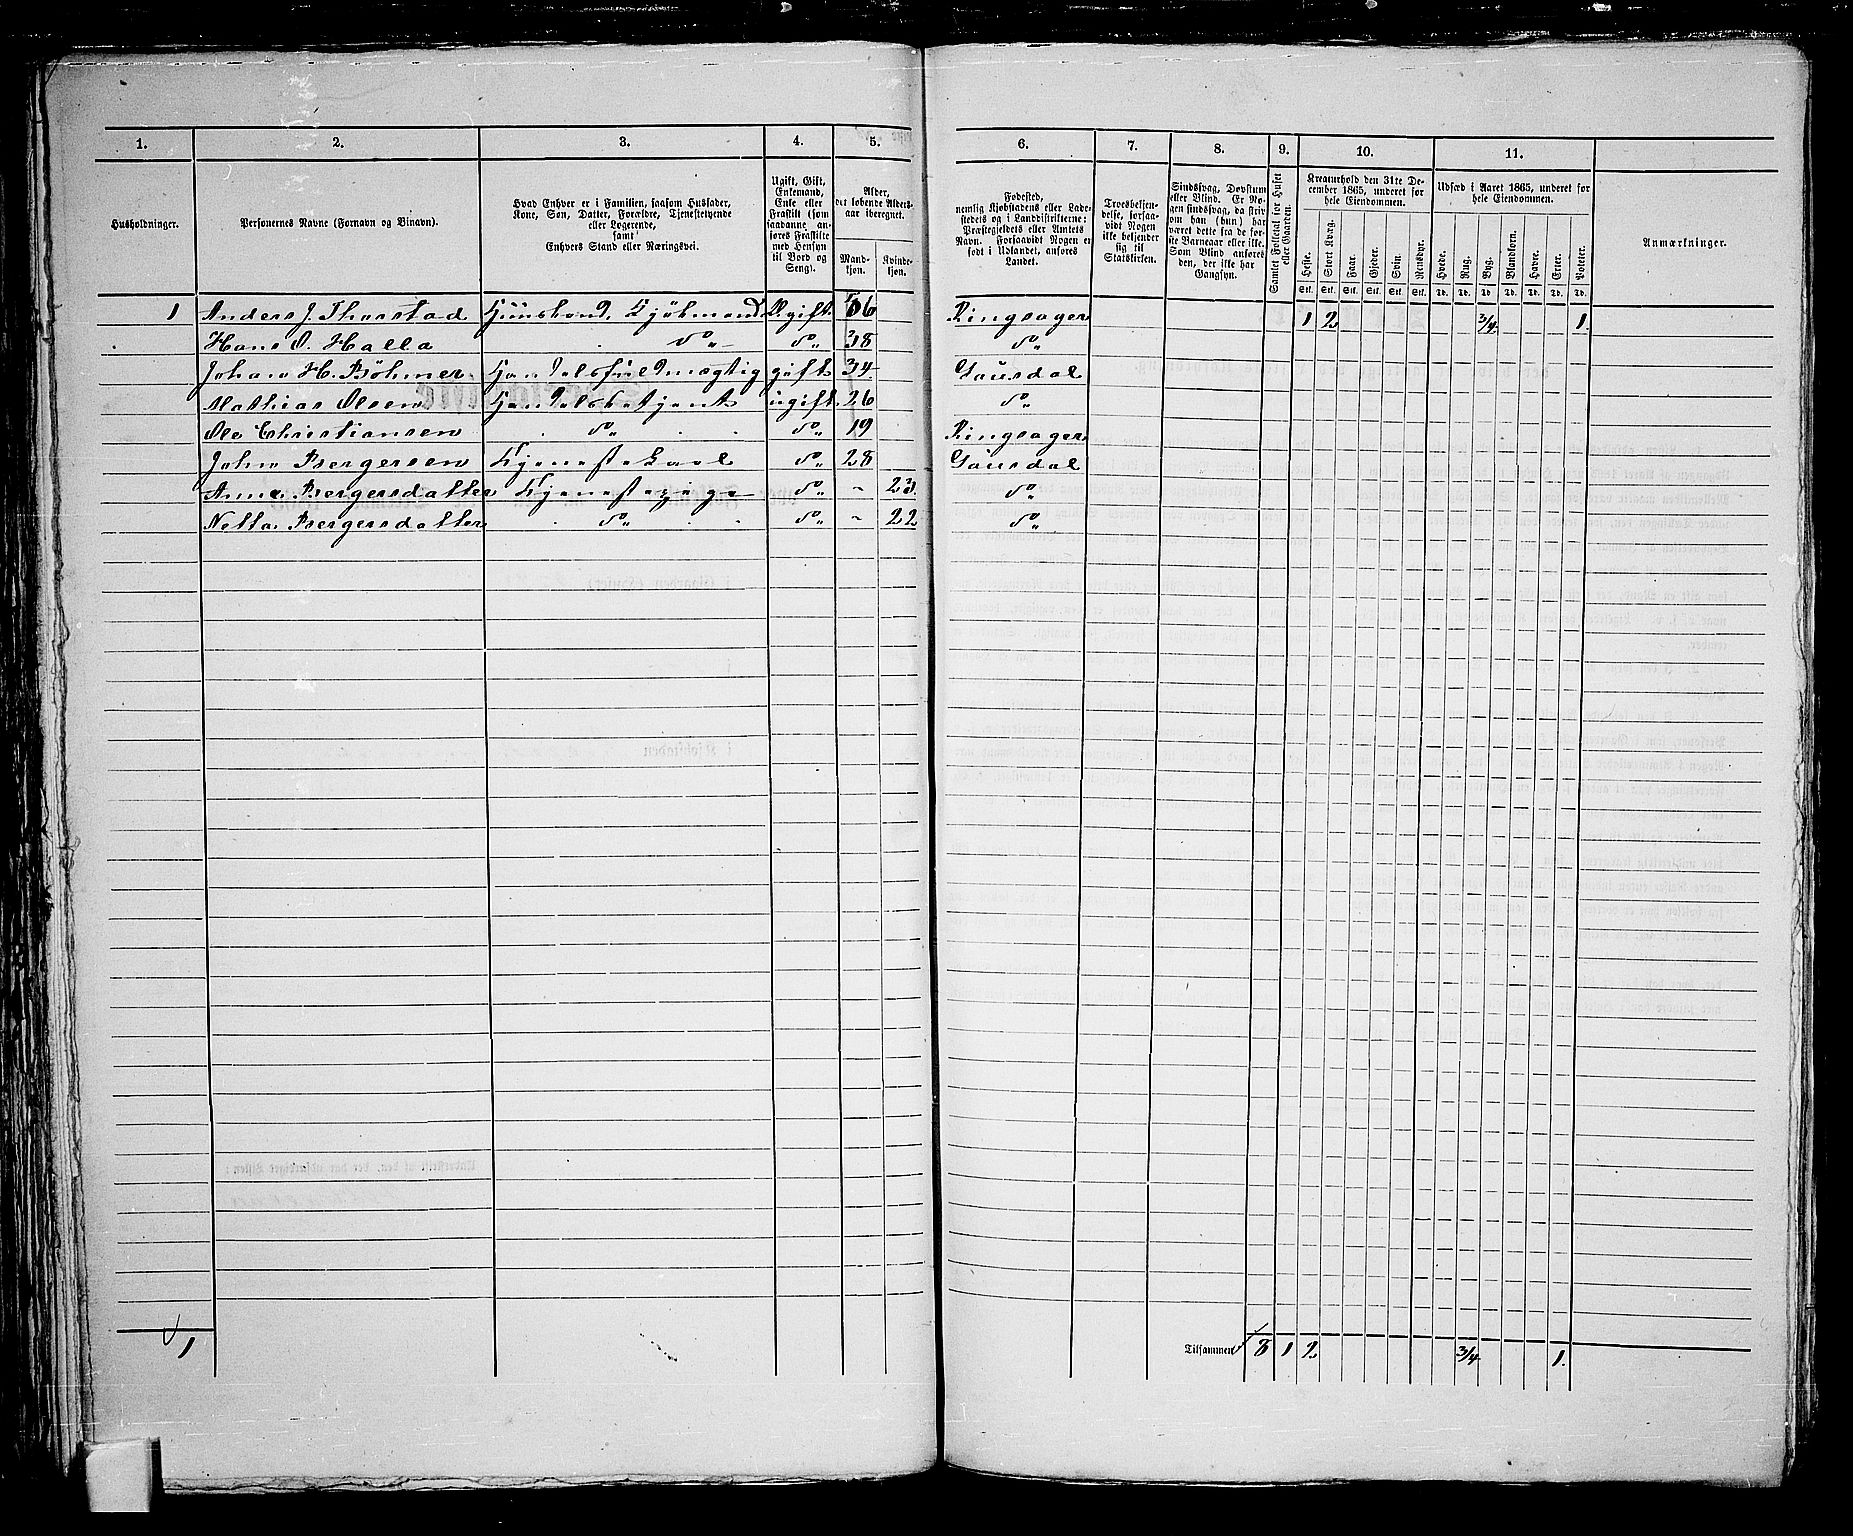 1. 2. 3. 4. 5. 6. 7. 8. 9. 10. 11.
Husholdninger.
Personernes Navne (Fornavn og Binavn).
Hvad Enhver er i Familien, saasom Husfader,
Kone, Søn, Datter, Forældre, Tjenestetyende
eller Logerende,
samt
Enhvers Stand eller Næringsvei.
Ugift, Gift,
Enkemand,
Enke eller
Fraskilt (som
saadanne an-
føres Fraskilte
med Hensyn
til Bord og
Seng).
Alder,
det løbende Alders-
aar iberegnet.
Mand-
kjøn.
Kvinde-
kjøn.
Fødested,
nemlig Kjøbstadens eller Lade-
stedets og i Landdistrikterne:
Præstegjeldets eller Amtets
Navn. Forsaavidt Nogen er
født i Udlandet, anføres
Landet.
Troesbekjen-
delse, forsaa-
vidt Nogen
ikke bekjender
sig til
Statskirken.
Sindssvag, Døvstum
eller Blind. Er No-
gen sindssvag, da skriv
om han (hun) har
været dette fra de før-
ste Barneaar eller ikke.
Som Blind anføres
den, der ikke har
Gangsyn.
Samlet Folketal for Huset
eller Gaarden.
Kreaturhold den 31te De-
cember 1865, underet for
hele Eiendommen.
Heste. Stort Kvæg. Faar. Gjeder. Svin. Rensdyr.
Stk. Stk. Stk. Stk. Stk. Stk.
Udsæd i Aaret 1865, underet for
hele Eiendommen.
Hvede. Rug. Byg. Blandkorn. Havre. Erter. Poteter.
Td. Td. Td. Td. Td. Td. Td.
Anmærkninger.
1 Anders J. Thorstad Kjöbmand Ugift 36 Ringsager 1 2 3/4 1.
Hans O. Halla do„ do„ 38 do„
Johan H. Böhmer Handelsfuldmægtig gift 34 Gausdal
Mathias Olsen Handelsbetjent ugift 26 do„
Ole Christiansen do„ do„ 19 Ringsager
John Bergersen Tjenestekarl do„ 28 Gausdal
Anne Bergersdatter Tjenestepige do„ - 23. do„
Netta Bergersdatter do„ do„ - 22 do„
1
Tilsammen 8 1 2 3/4 1.